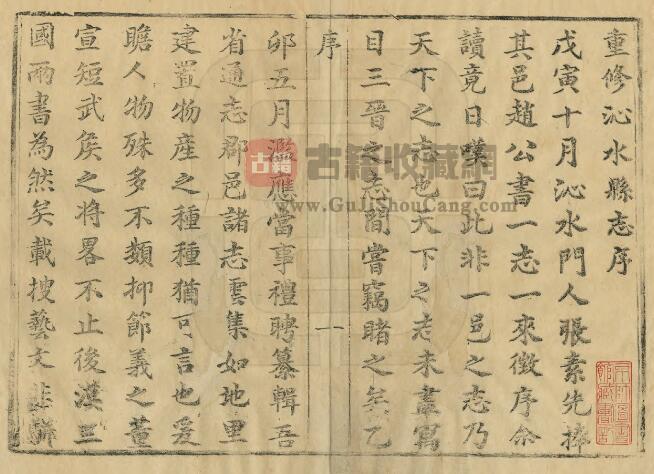 重修沁水縣志序
戊寅十月沁水門人張素先捧
其邑趙公書一志一來徵序余
讀竟日嘆曰此非一邑之志乃
天下之志也天下之志未畢寓
目三晉之志間嘗竊睹之矣乙
序
一
卯五月濫應當事禮聘纂輯吾
省通志郡邑諸志雲集如地里
建置物產之種種猶可言也爰
瞻人物殊多不類抑節義之董
宣短武矦之將畧不止後漢三
國兩書為然矣載搜藝文非駢
古籍
古籍收藏網
www.GuJiShouCang.com